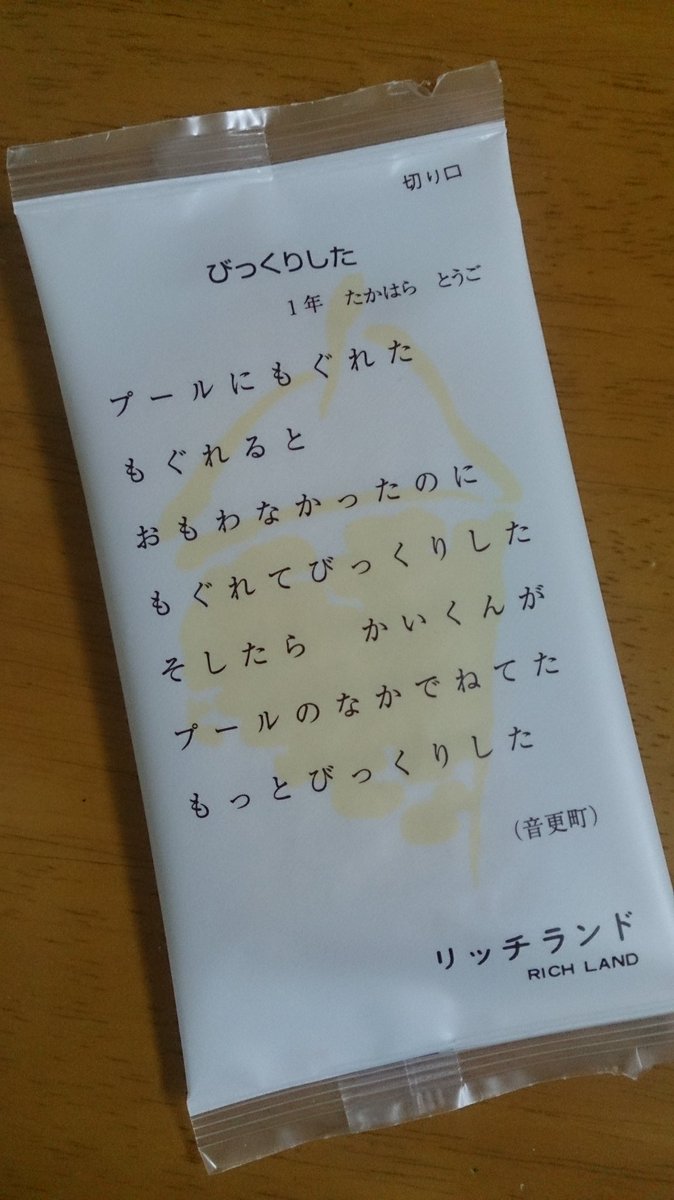 切り口
びっくりした
1年 たかはら とうご
プールにもぐれた
もぐれると
おもわなかったのに
もぐれてびっくりした
そしたら かいくんが
プールのなかでねてた
もっとびっくりした
(音更町)
リッチランド
RICH LAND